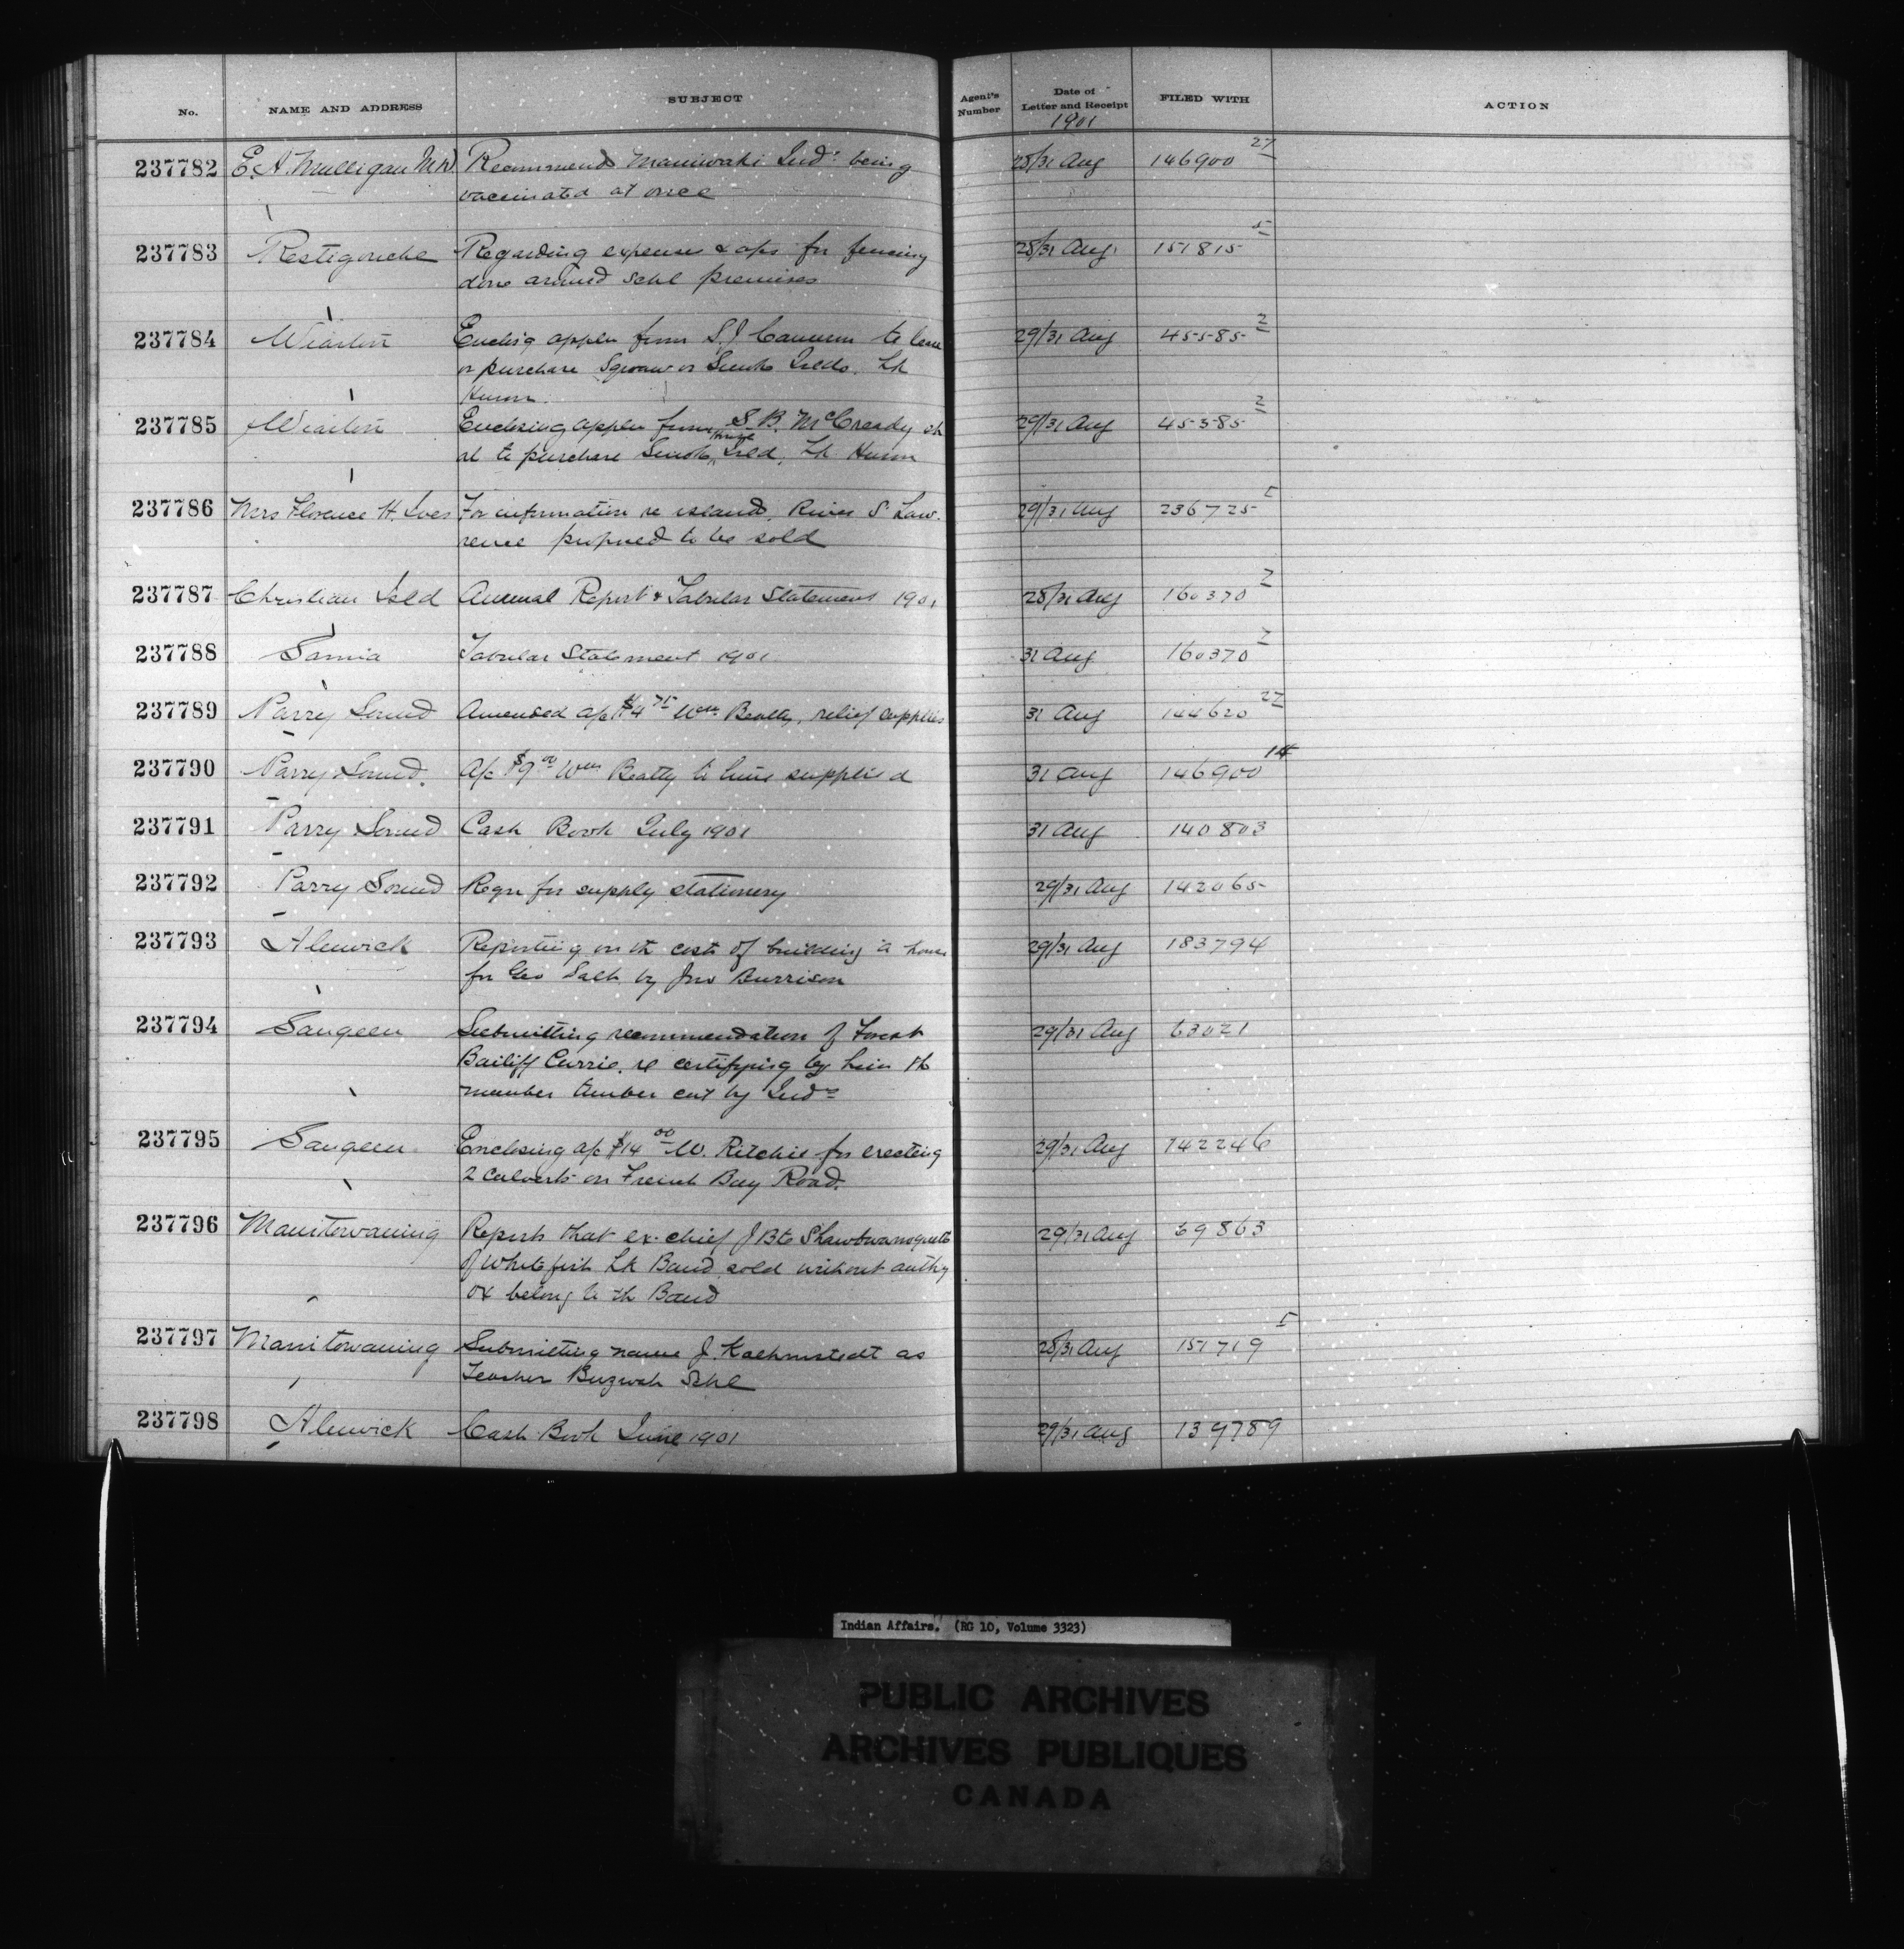 No. NAME AND ADDRESS SUBJECT Agent's Number Date of Letter and Receipt FILED WITH ACTION
1901
237782 E. A. Mulligan M.D. Recommends Maniwaki Inds being 28/31 Aug 146900 27
vaccinated at once
237783 Restigouche Regarding expense & a/cs for fencing 28/31 Aug 151815 5
done around schl premises
237784 Wiarton Enclsig applen from S. J. Cameron to lease 29/31 Aug 45585 2
or purchase Squaw or Smoke Islds. Lk
Huron.
237785 Wiarton Enclosing applen from S. B. McCready
al to purchase Smoke House Isld, Lk Huron 29/31 Aug 45385 2
237786 Mrs Florence H. Ives For information re island, River St Law- 29/31 Aug 236725
rence proposed to be sold
237787 Christian Isld Annual Report & Tabular Statement 1901 28/31 Aug 160370 2
237788 Sarnia Tabular Statement 1901 31 Aug 160370 2
237789 Parry Sound Amended a/c $4 75 Wm Beatty, relief supplies 31 Aug 144620 27
237790 Parry Sound. A/c $9 00 Wm Beatty to lime supplied 31 Aug 146900 14
237791 Parry Sound Cash Book July 1901 31 Aug 140803
237792 Parry Sound Reqn for supply stationery 29/31 Aug 142065
237793 Alnwick Reporting on th costs of building a house 29/31 Aug 183794
for Geo Salt by Jno Burrison
237794 Saugeen Submitting recommendation of Forest 29/31 Aug 63021
Bailiff Currie, re certifying by him th
number timber cut by Inds
237795 Saugeen Enclosing a/c $14 00 W. Ritchie for erecting 29/31 Aug 142246
2 culverts on French Bay Road.
237796 Manitowaning Reports that ex-chief J Bte 29/31 Aug 69863
of Whitefish Lk Band sold without authy
ox belong to th Band
237797 Manitowaning Submitting name J. Kaehmstedt as 28/31 Aug 151719
Teacher Buzwah Schl
237798 Alnwick Cash Book June 1901 29/31 Aug 139789
Indian Affairs. (RG 10, Volume 3323)
PUBLIC ARCHIVES
ARCHIVES PUBLIQUES
CANADA